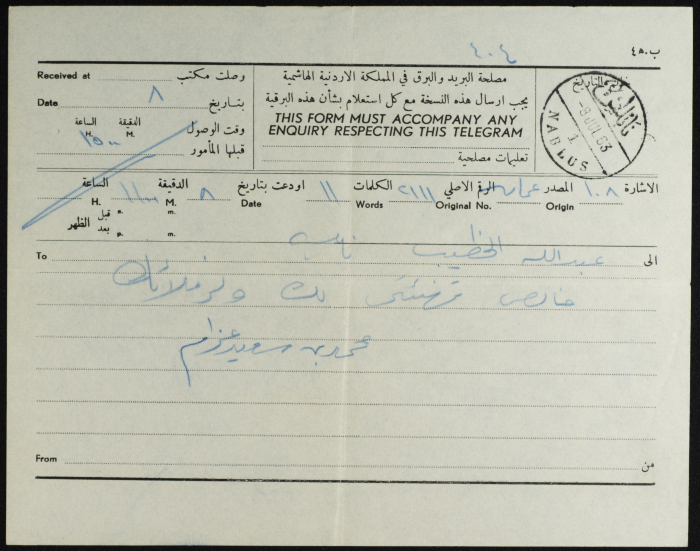 ٤٠٤
ب.٤٥
Received at وصلت مكتب
Date بتاريخ ٨
الساعة الدقيقة
H. M. وقت الوصول
١٥٠٠
قبلها المأمور
مصلحة البريد والبرق في المملكة الاردنية الهاشمية
يجب ارسال هذه النسخة مع كل استعلام بشأن هذه البرقية
THIS FORM MUST ACCOMPANY ANY
ENQUIRY RESPECTING THIS TELEGRAM
تعليمات مصلحية
بالتاريخ
نابلس
-8 JUL 63
1
NABLUS
الاشارة ١٠٨ المصدر عمان الرقم الاصلي ٢١١١ الكلمات ١١ اودعت بتاريخ ٨ الدقيقة ١١٠٠ الساعة
Origin Original No. Words Date M. H.
قبل a. m.
بعد p. m. الظهر
To عبدالله الخطيب نابلس الى
خالص تهنئتي لك ولزملائك
محمد سعيد عزام
From من